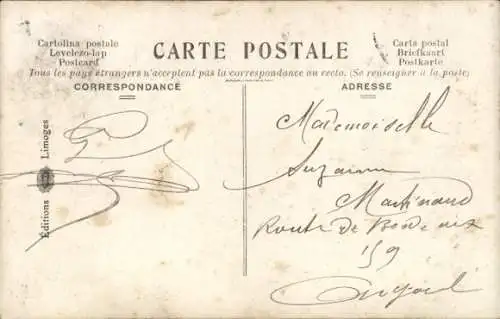 Cartolina postale
Levelezo-lap
Postcard
CARTE POSTALE
Carta postal
Briefkaart
Postkarte
Tous les pays étrangers n'acceptent pas la correspondance au recto. (Se renseigner à la poste)
CORRESPONDANCE
ADRESSE
Editions Limoges
Mademoiselle
Suzanne
Martinaud
Route de Bordeaux
159